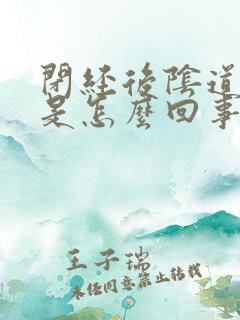 閉經後陰道
是怎麼回事
王子瑞
未经同意禁止转载